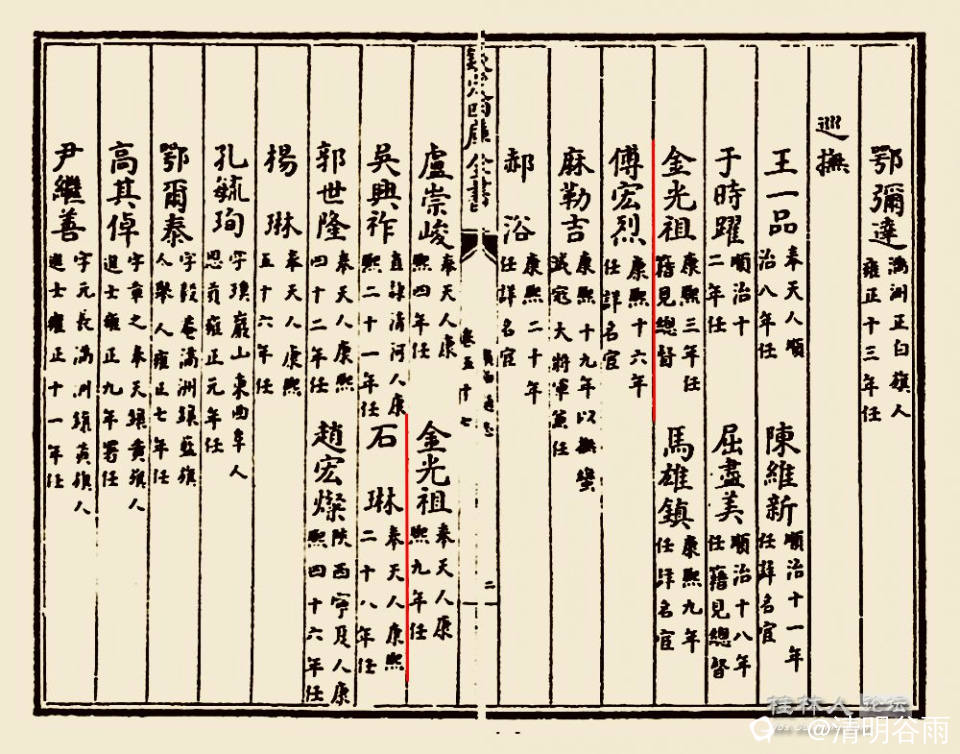 鄂彌達 滿洲正白旗人雍正十三年任
巡撫
王一品 奉天人順治八年任 陳維新 順治十一年任詳名宦
于時躍 順治十二年任 屈盡美 順治十八年任籍見總督
金光祖 康熙三年任籍見總督 馬雄鎮 康熙九年任詳名宦
傅宏烈 康熙十六年任詳名宦
麻勒吉 康熙十九年以撫蠻滅寇大將軍兼任
郝浴 康熙二十年任詳名宦
欽定四庫全書 廣西通志 卷五十七 二
盧崇峻 奉天人康熙四年任 金光祖 奉天人康熙九年任
吳興祚 直隸清河人康熙二十一年任 石琳 奉天人康熙二十八年任
郭世隆 奉天人康熙四十二年任 趙宏燦 陝西寧夏人康熙四十六年任
楊琳 奉天人康熙五十六年任
孔毓珣 字璞巖山東曲阜人恩貢雍正元年任
鄂爾泰 字毅菴滿洲鑲藍旗人舉人雍正七年任
高其倬 字章之奉天鑲黃旗人進士雍正九年署任
尹繼善 字元長滿洲鑲黃旗人進士雍正十一年任
桂林人论坛
@清明谷雨